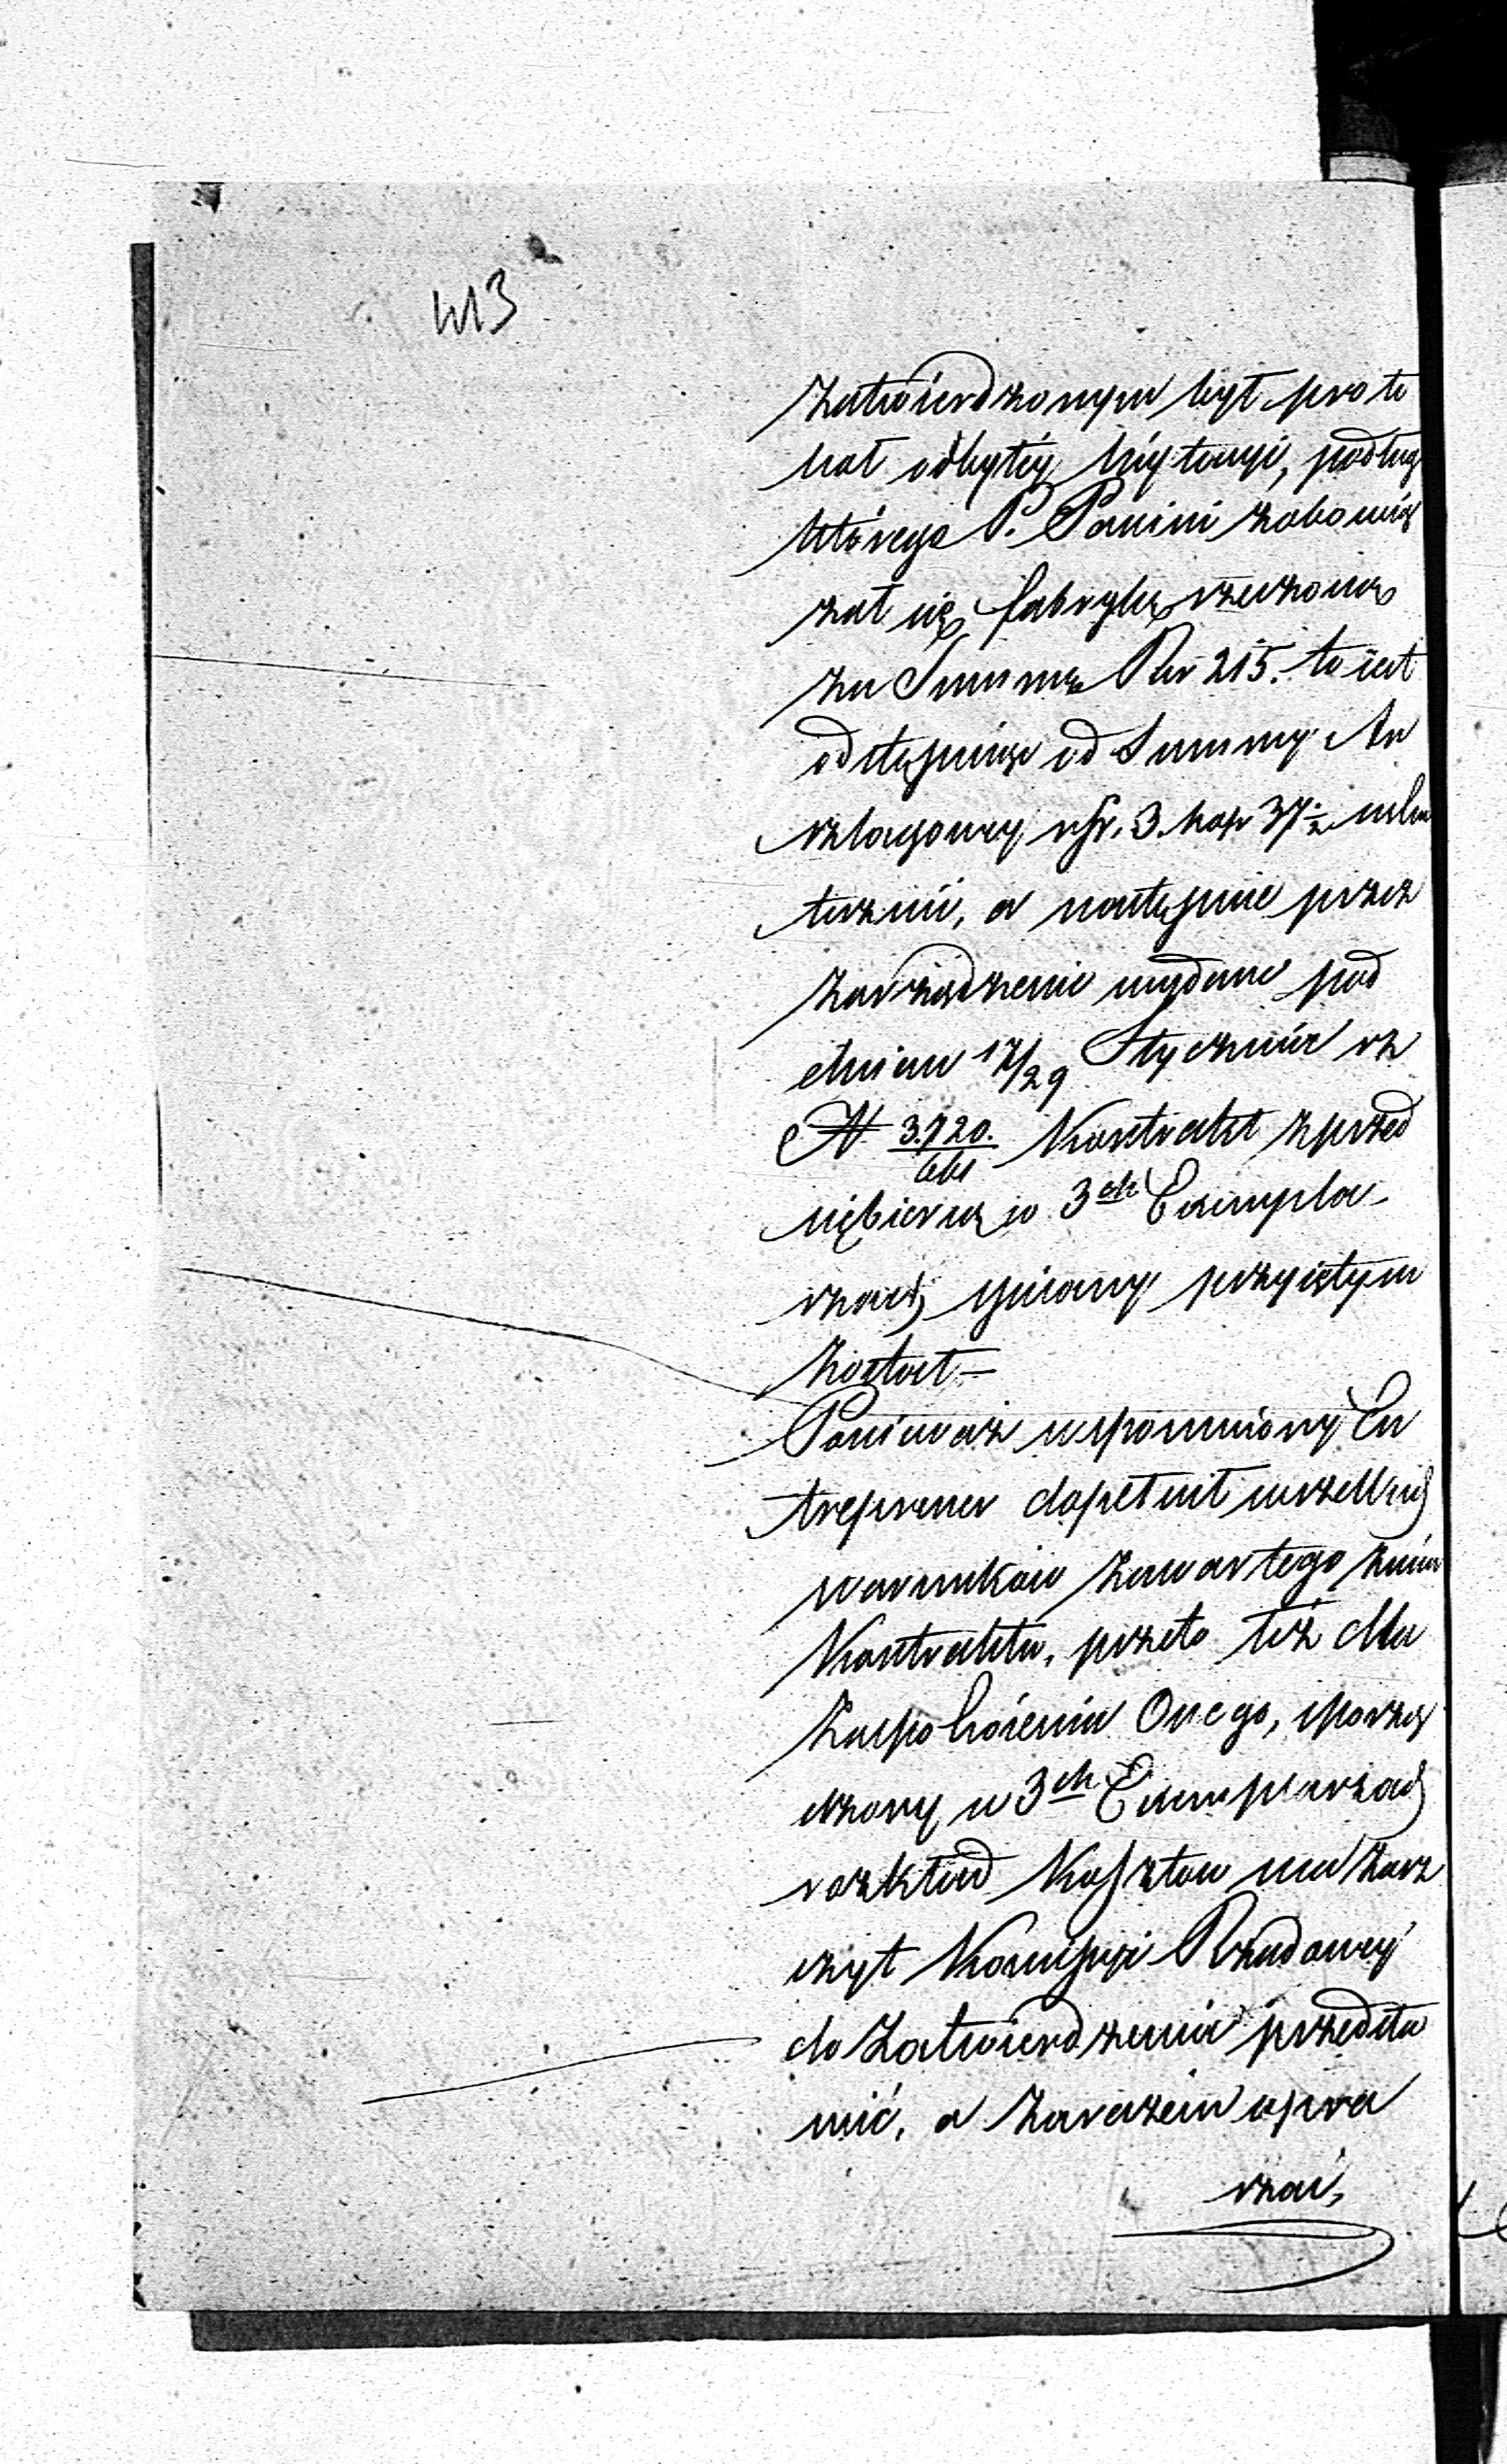 413
zatwierdzonym był proto
kół odbytéy licytacyi, podług
którego P. Panini zobowią
zał się fabrykę rzeczoną
za Summę Rsr 215. to iest
odstępuiąc od Summy An
szlagowey rsr. 3. kop 37½ usku
tecznić, a następnie przez
zarządzenie wydane pod
dniem 17/29 Stycznia rb
N 3.720./661 Kontrakt z przed
siębiercą w 3ch Exempla-
rzach spisany przyiętym
został –
Ponieważ wspomniony En
treprener dopełnił wszelkich
warunków zawartego z nim
Kontraktu, przeto też dla
zaspokoienia Onego, sporzą
dzony w 3ch Exemplarzach
rozkład Kosztów ma zasz
czyt Kommissyi Rządowey
do zatwierdzenia przedsta
wić, a zarazem upra
szać,